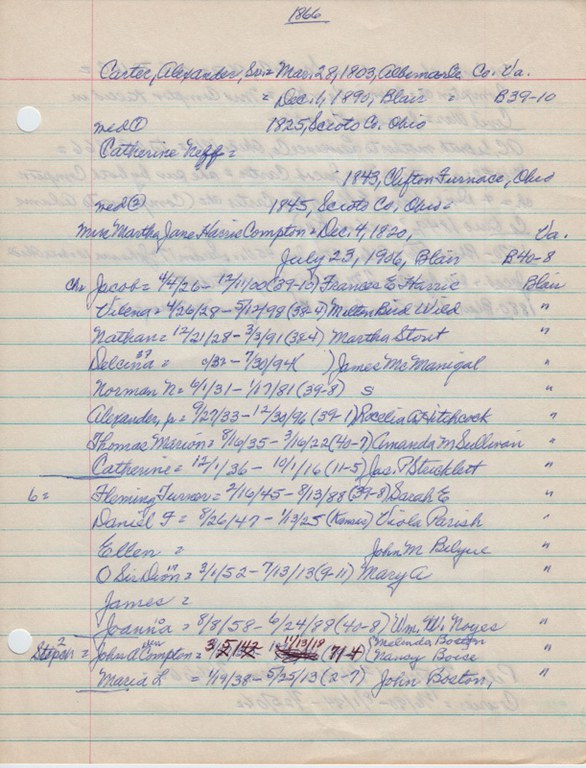 1866
Carter, Alexander, Sr. = Mar. 28, 1803, Albemarle Co. Va.
= Dec. 1, 1890, Blair = B39-10
med ① 1825, Scioto Co. Ohio
Catherine Neff =
1843, Clifton Furnace, Ohio
med ② 1845, Scioto Co, Ohio =
Mrs. Martha Jane Harris Compton = Dec. 4, 1820, Va.
July 23, 1906, Blair B40-8
Ch. Jacob = 4/4/26 - (39-10) Frances E. Harris Blair
Vilena = 4/26/28 - 5/12/99 (38-4) Milton Bird Wild "
Nathan = 12/21/28 - 3/3/91 (38-4) Martha Stout "
Delcina = /32 - 7/30/94 ) James McManigal "
Norman N = 6/1/31 - 1/17/81 (39-8) S "
Alexander, Jr. = 9/27/33 - 12/30/96 (39-1) Rocelia A. Hitchcock "
Thomas Marion = 8/16/35 - 3/16/22 (40-7) Amanda M Sullivan "
Catherine = 12/1/36 - 10/1/16 (11-5) Jas. P Stricklett "
6 = Fleming Turner = 2/16/45 - 8/13/88 (39-8) Sarah E "
Daniel F = 8/26/47 - 1/13/25 (Kansas) Viola Parish "
Ellen = John M Bilyue "
O Sir Dion = 3/1/52 - 7/13/13 (9-11) Mary A "
James =
Joanna = 8/8/58 - 6/24/88 (40-8) Wm. W. Noyes "
2 Step ch = John A Compton = (71-4) Melinda Boston "
Nancy Boise
Maria L = 1/19/38 - 5/25/13 (2-7) John Boston, "